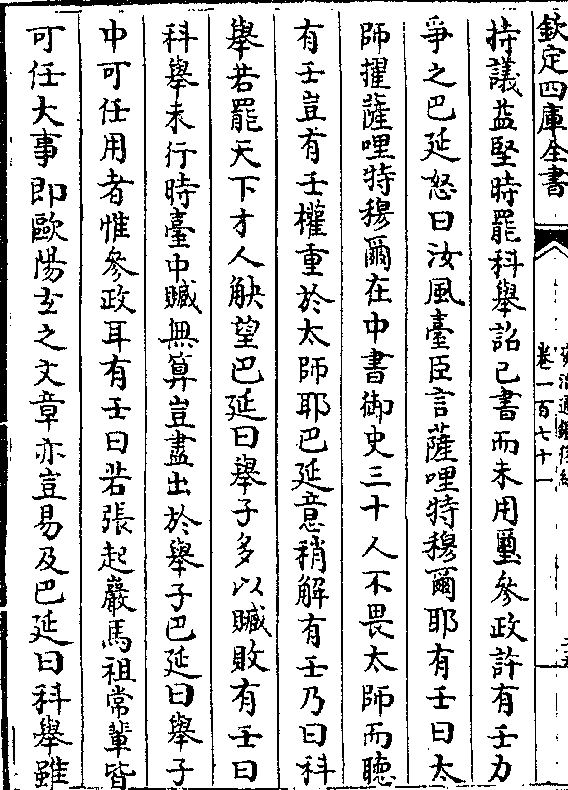 欽定四庫全書
卷一百七十一
持議益堅時罷科舉詔已書而未用璽參政許有壬力
爭之巴延怒曰汝風臺臣言薩哩特穆爾耶有壬曰太
師擢薩哩特穆爾在中書御史三十人不畏太師而聽
有壬豈有壬權重於太師耶巴延意稍解有壬乃曰科
舉若罷天下才人觖望巴延曰舉子多以贓敗有壬曰
科舉未行時臺中贓無算豈盡出於舉子巴延曰舉子
中可任用者惟參政耳有壬曰若張起巖馬祖常輩皆
可任大事即歐陽玄之文章亦豈易及巴延曰科舉雖